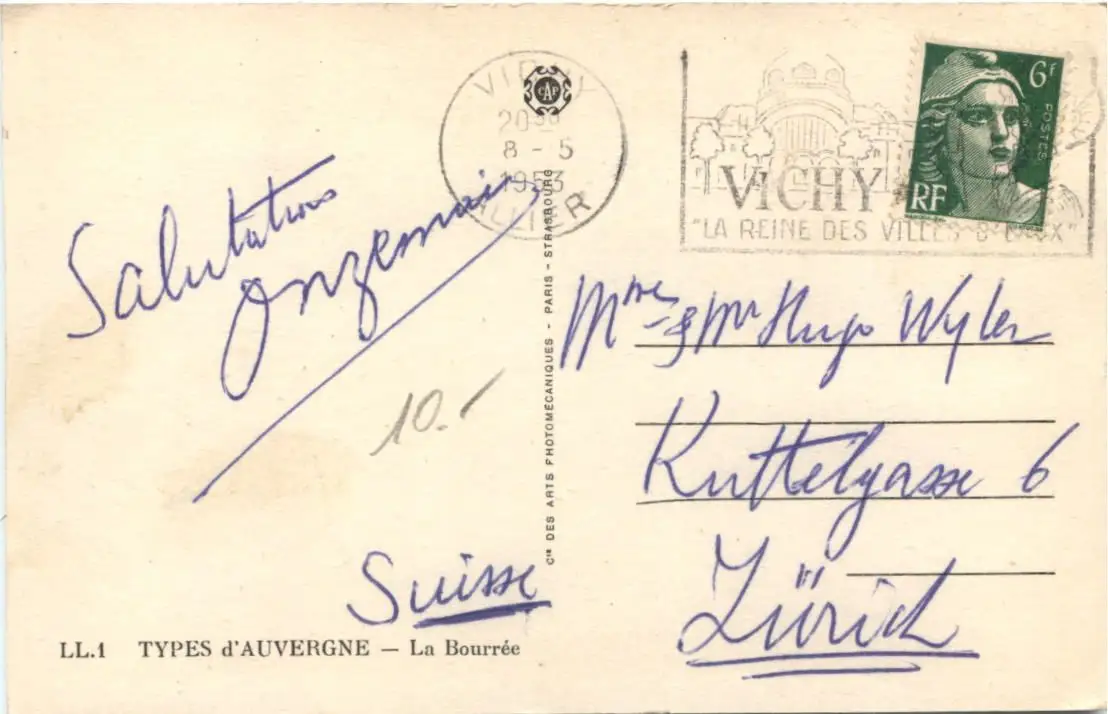 Salutations
10.-
Suisse
LL.1 TYPES d'AUVERGNE — La Bourrée
Cie DES ARTS PHOTOMÉCANIQUES - PARIS - STRASBOURG
CAP
VICHY
8 - 5
1953
ALLIER
VICHY
"LA REINE DES VILLES D'EAUX"
6F
POSTES
RF
Mme & Mr Hugo Wyler
Kuttelgasse 6
Zürich